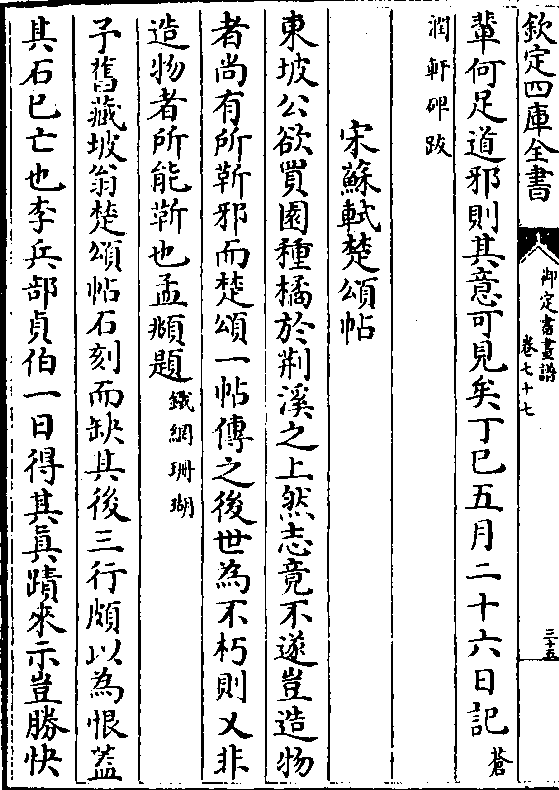 欽定四庫全書
御定書畫譜
卷七十七
三十五
輩何足道邪則其意可見矣丁巳五月二十六日記蒼
潤軒碑跋
宋蘇軾楚頌帖
東坡公欲買園種橘於荆溪之上然志竟不遂豈造物
者尚有所靳邪而楚頌一帖傳之後世為不朽則又非
造物者所能靳也孟頫題鐵網珊瑚
予舊藏坡翁楚頌帖石刻而缺其後三行頗以為恨葢
其石已亡也李兵部貞伯一日得其真蹟來示豈勝快